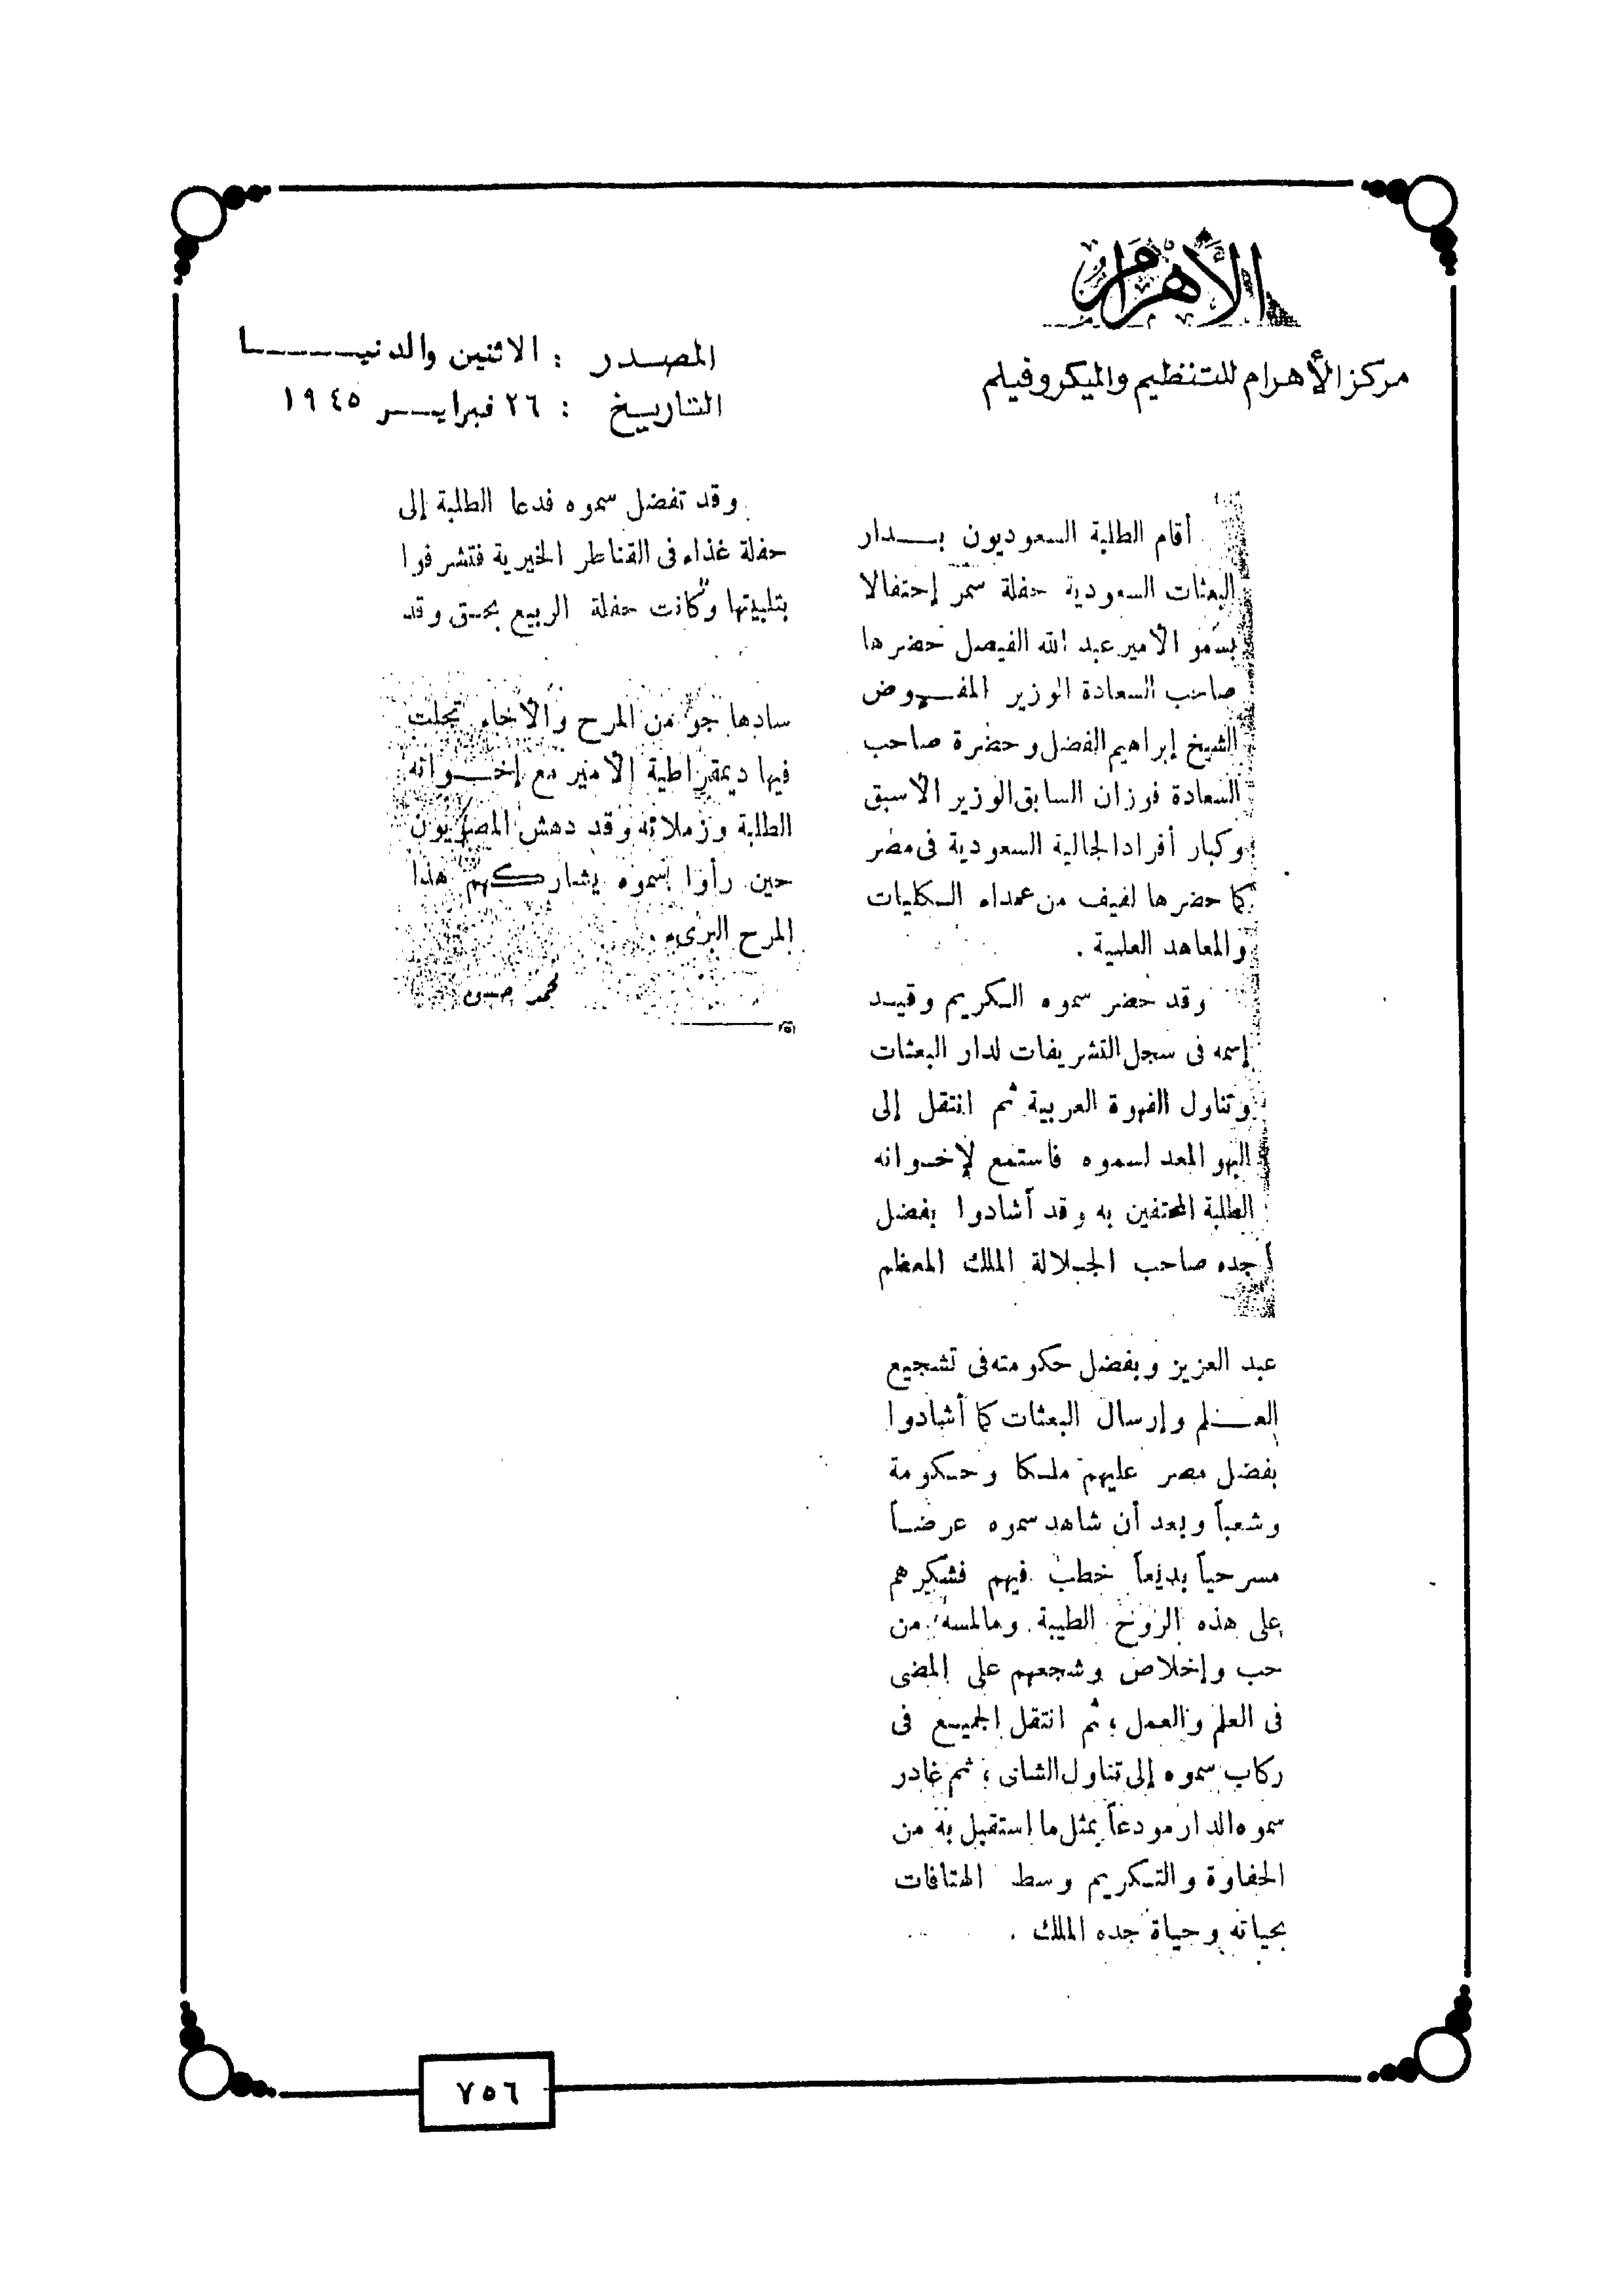 الأهرام
مركز الأهرام للتنظيم والميكروفيلم
المصدر : الاثنين والدنيا
التاريخ : ٢٦ فبراير ١٩٤٥
أقام الطلبة السعوديون بدار
البعثات السعودية حفلة سمر إحتفالا
بسمو الأمير عبد الله الفيصل حضرها
صاحب السعادة الوزير المفوض
الشيخ إبراهيم الفضل وحضرة صاحب
السعادة فوزان السابق الوزير الأسبق
وكبار أفراد الجالية السعودية فى مصر
كما حضرها لفيف من عمداء الكليات
والمعاهد العلمية .
وقد حضر سموه الكريم وقيد
إسمه فى سجل التشريفات لدار البعثات
وتناول القهوة العربية ثم انتقل إلى
البهو المعد لسموه فاستمع لإخوانه
الطلبة المحتفين به وقد أشادوا بفضل
جده صاحب الجلالة الملك المعظم
عبد العزيز وبفضل حكومته فى تشجيع
العلم وإرسال البعثات كما أشادوا
بفضل مصر عليهم ملكا وحكومة
وشعباً وبعد أن شاهد سموه عرضاً
مسرحياً بديعاً خطب فيهم فشكرهم
على هذه الروح الطيبة وما لمسه من
حب وإخلاص وشجعهم على المضى
فى العلم والعمل ؛ ثم انتقل الجميع فى
ركاب سموه إلى تناول الشاى ؛ ثم غادر
سموه الدار مودعاً بمثل ما استقبل به من
الحفاوة والتكريم وسط الهتافات
بحياته وحياة جده الملك .
وقد تفضل سموه فدعا الطلبة إلى
حفلة غذاء فى القناطر الخيرية فتشرفوا
بتلبيتها وكانت حفلة الربيع بحق وقد
سادها جو من المرح والأخاء تجلت
فيها ديمقراطية الأمير مع إخوانه
الطلبة وزملائه وقد دهش المصريون
حين رأوا سموه يشاركهم هذا
المرح البرىء .
محمد حسن
٧٥٦